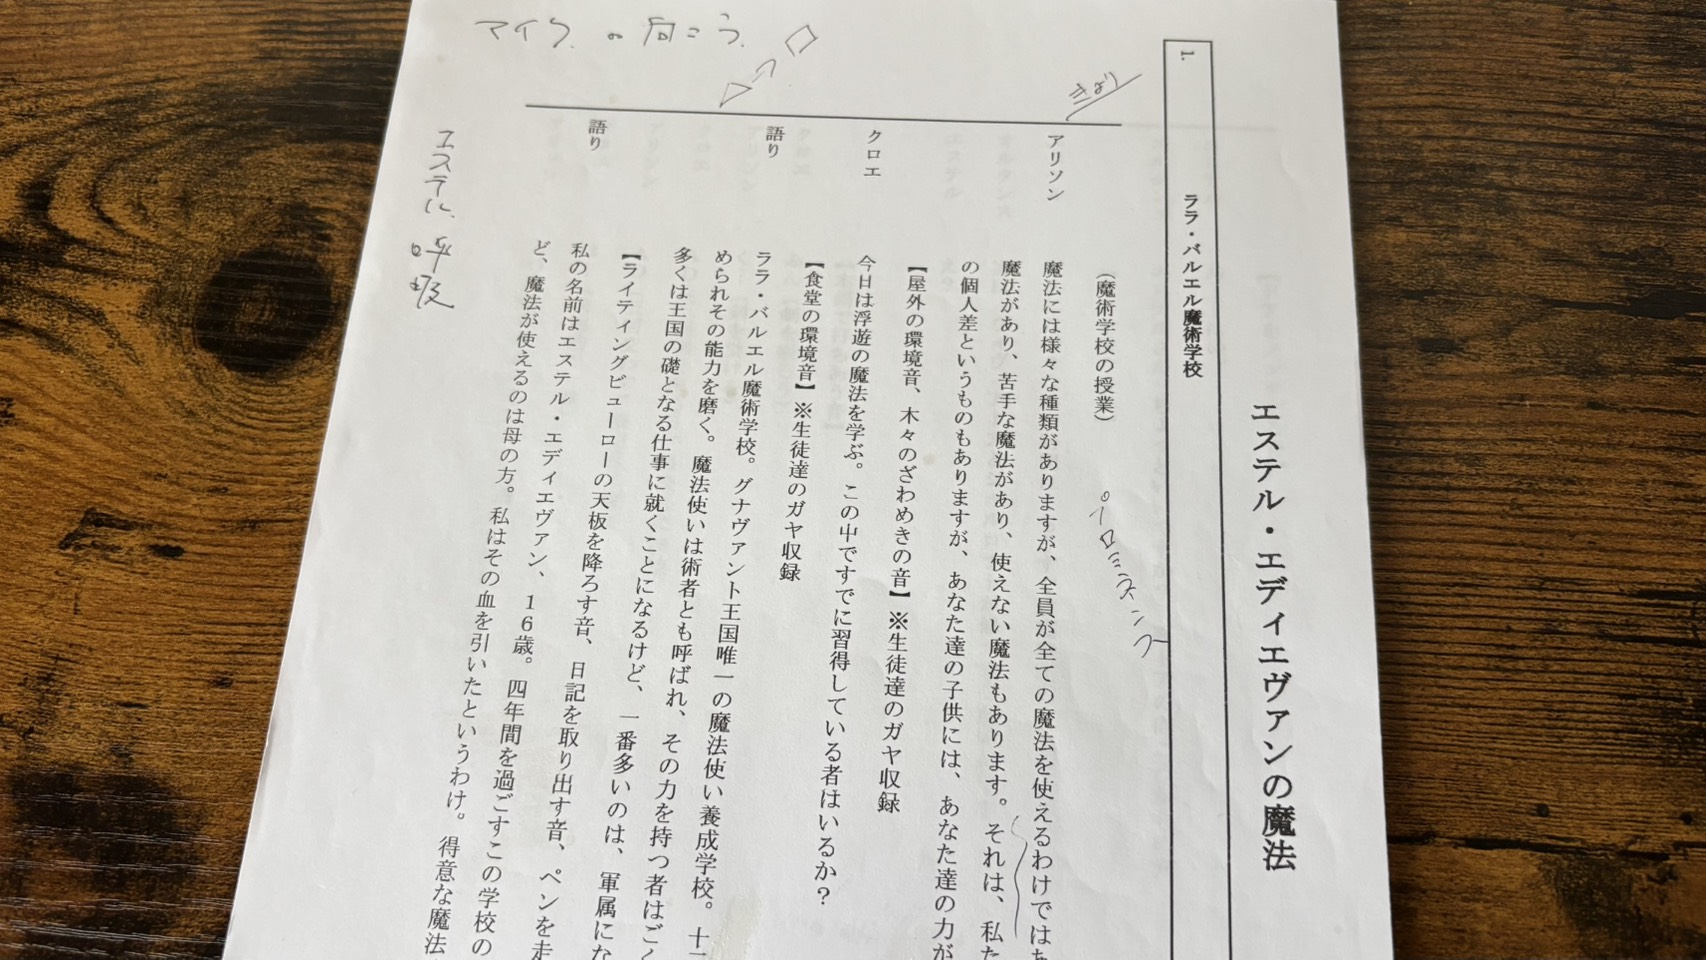 エステル・エディエヴァンの魔法
1.　ララ・バルエル魔術学校
（魔術学校の授業）
アリソン　魔法には様々な種類がありますが、全員が全ての魔法を使えるわけではち
魔法があり、苦手な魔法があり、使えない魔法もあります。それは、私た
の個人差というものもありますが、あなた達の子供には、あなた達の力が
【屋外の環境音、木々のざわめきの音】※生徒達のガヤ収録
クロエ　今日は浮遊の魔法を学ぶ。この中ですでに習得している者はいるか？
【食堂の環境音】※生徒達のガヤ収録
語り　ララ・バルエル魔術学校。グナヴァント王国唯一の魔法使い養成学校。十
められその能力を磨く。魔法使いは術者とも呼ばれ、その力を持つ者はごく
多くは王国の礎となる仕事に就くことになるけど、一番多いのは、軍属にな
【ライティングビューローの天板を降ろす音、日記を取り出す音、ペンを走
語り　私の名前はエステル・エディエヴァン、16歳。四年間を過ごすこの学校の
ど、魔法が使えるのは母の方。私はその血を引いたというわけ。得意な魔法
マイクの向こう
きょり
エステル 呼吸